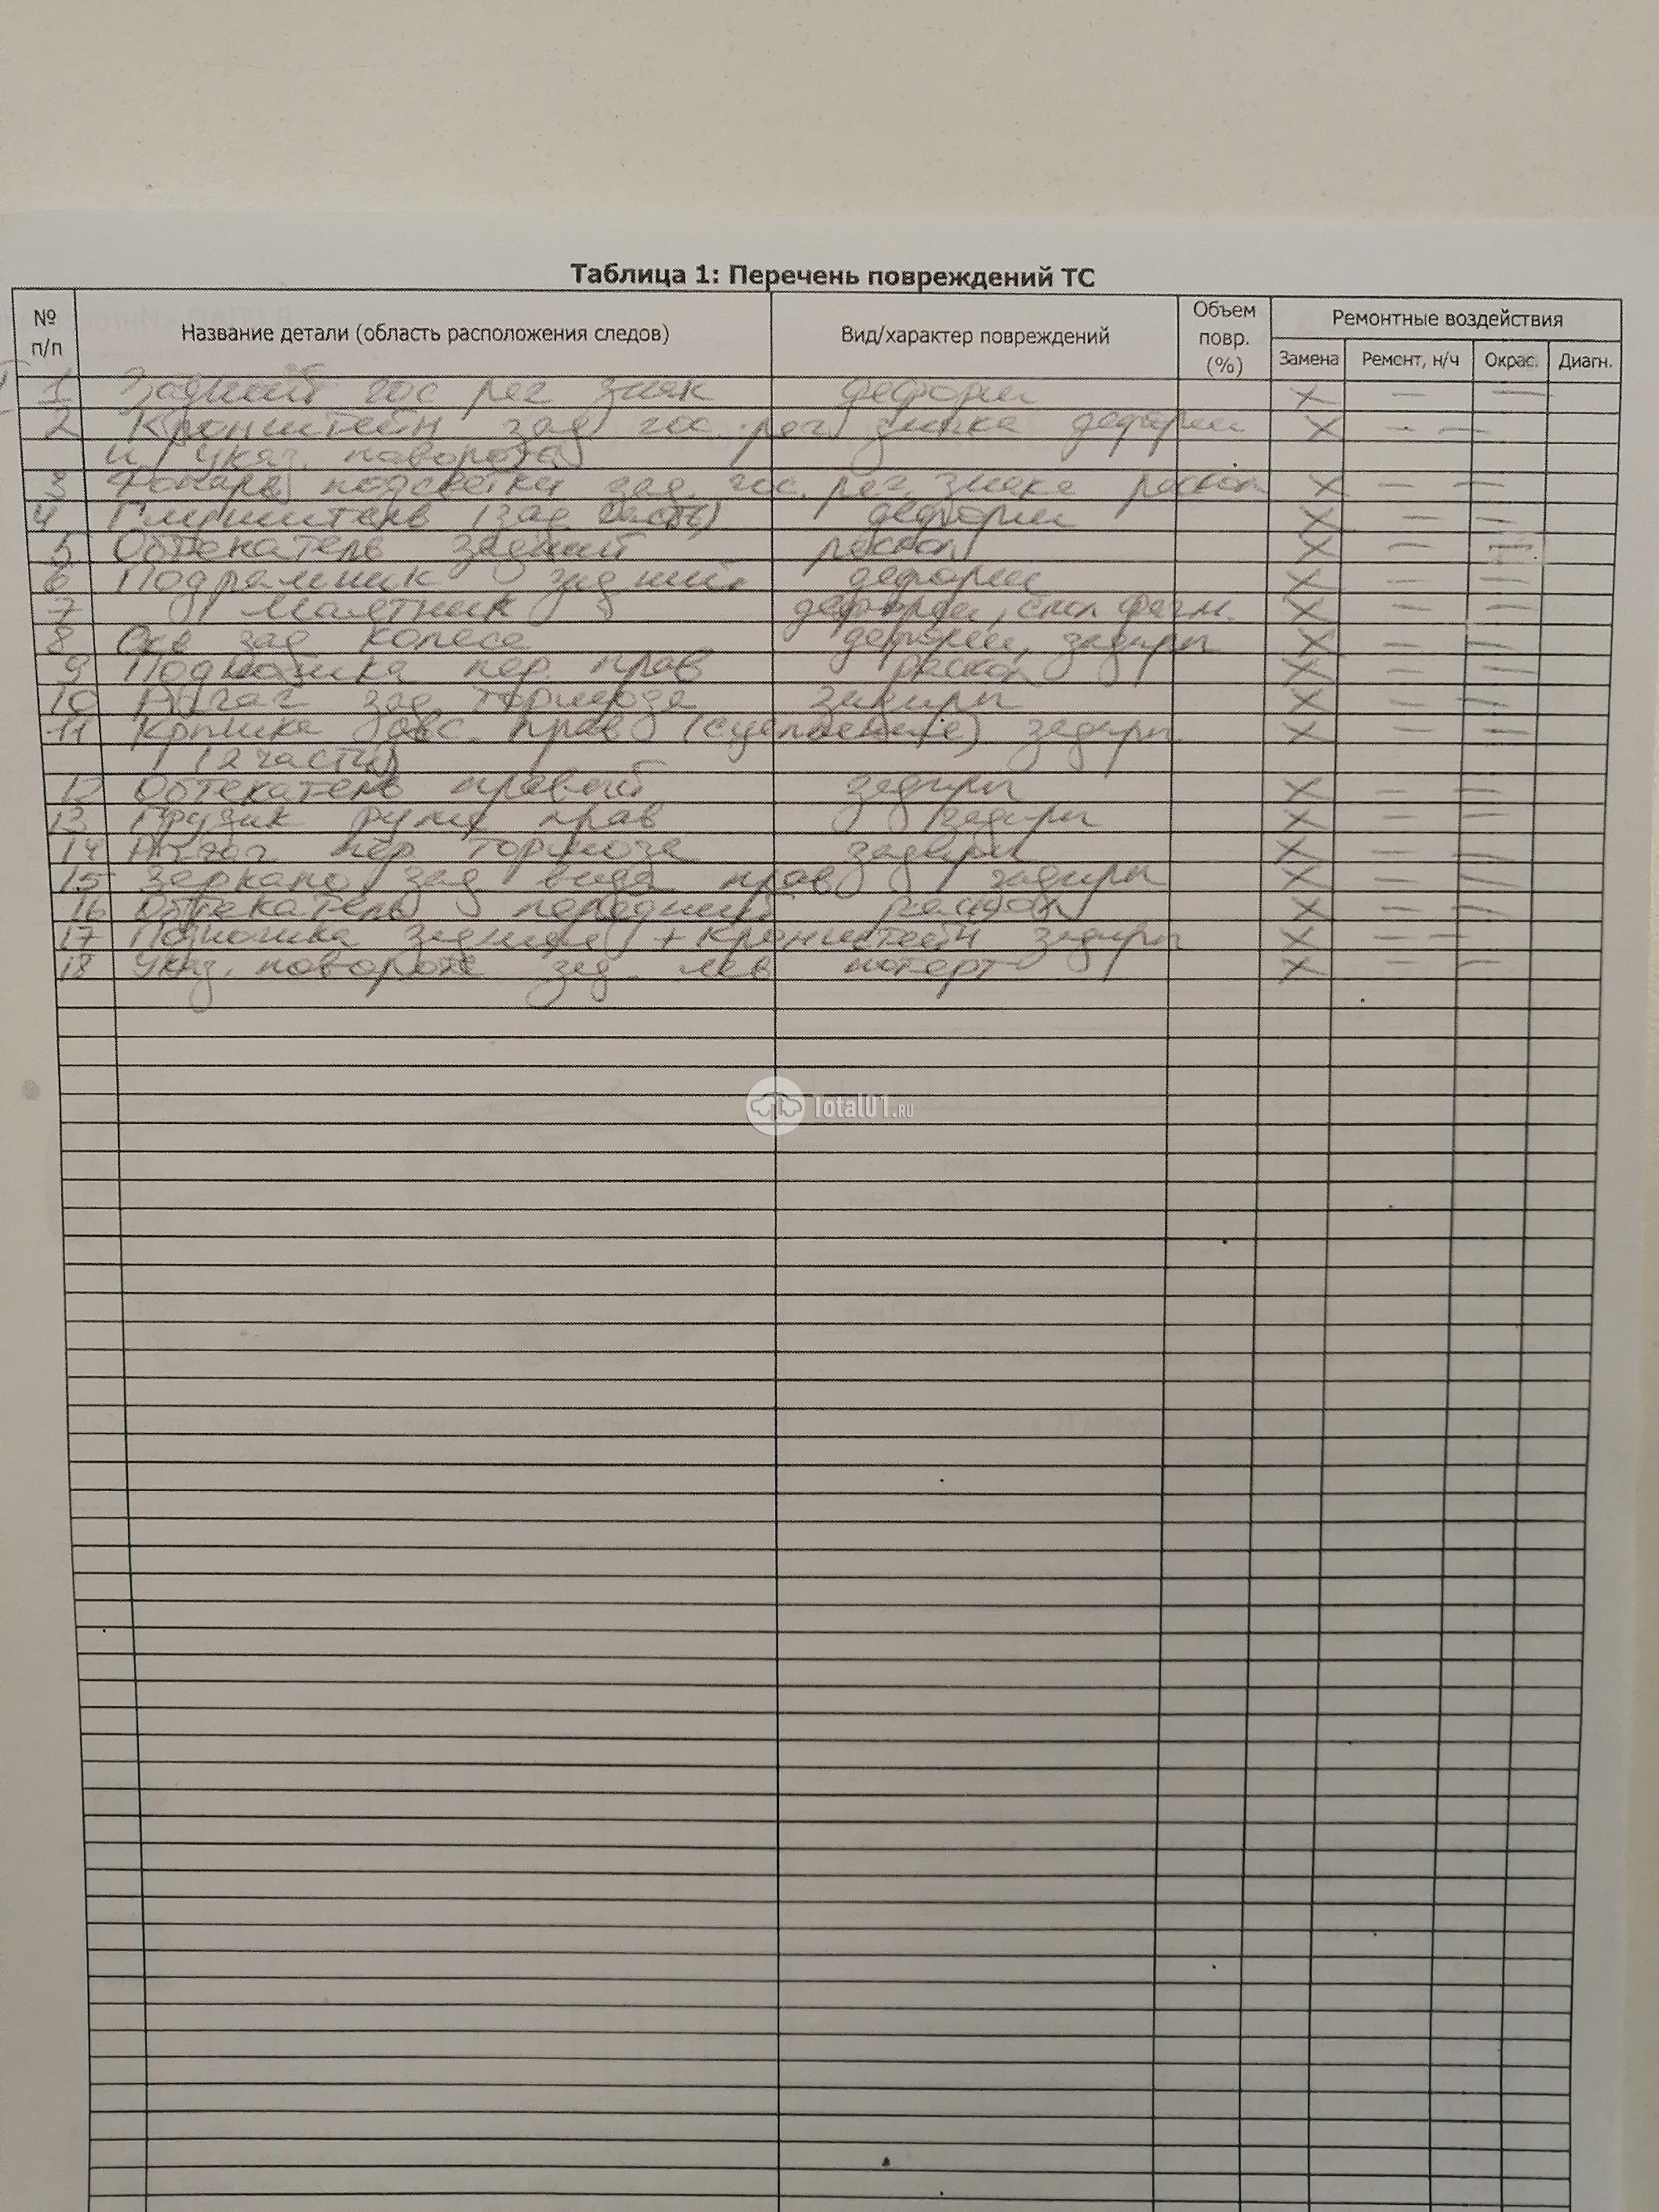 Таблица 1: Перечень повреждений ТС
№ п/п Название детали (область расположения следов) Вид/характер повреждений Объем повр. (%) Ремонтные воздействия
Замена Ремонт, н/ч Окрас. Диагн.
1 Задний гос рег знак деформ X — —
2 Кронштейн зад гос. рег знака деформ X — —
и указ. поворота
3 Фонарь подсветки зад. гос. рег. знака раскол X — —
4 Глушитель (зад часть) деформ X — —
5 Обтекатель задний раскол X — —
6 Подрамник задний деформ X — —
7 Маятник деформ, скол фрагм. X — —
8 Ось зад колеса деформ, задиры X — —
9 Подножка пер. прав раскол X — —
10 Рычаг зад тормоза задиры X — —
11 Крышка двс. прав (сцепление) задиры X — —
(2 части)
12 Обтекатель правый задиры X — —
13 Грузик руля прав задиры X — —
14 Рычаг пер тормоза задиры X — —
15 Зеркало зад вида прав задиры X — —
16 Обтекатель передний X — —
17 Подножка задняя + кронштейн задиры X — —
18 Указ. поворота зад. лев потерт X — —
Total01.RU